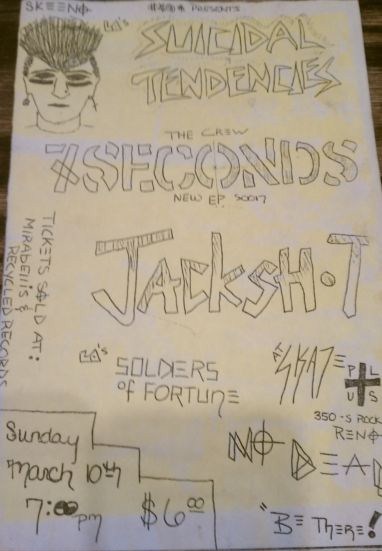 SKEENO
#@$* PRESENTS
CA's
SUICIDAL
TENDENCIES
THE CREW
7 SECONDS
NEW EP SOON
JACKSH·T
TICKETS SOLD AT:
MIRABELLI'S &
RECYCLED RECORDS
CA's
SOLDIERS
OF FORTUNE
SKATE
PLUS
350 -S ROCK
RENO
Sunday
March 10th
7:00 pm
$6 00
NO DEA
"BE THERE!